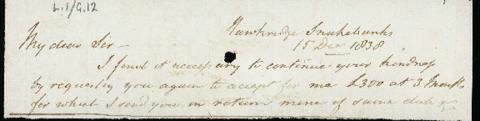 L.1/G.12
Hawkridge Snakebanks
15 Decr 1838
My dear Sir —
I find it necessary to continue your kindness
by requesting you again to accept for me £300 at 3 Months
for which I send you in return mine of same date &